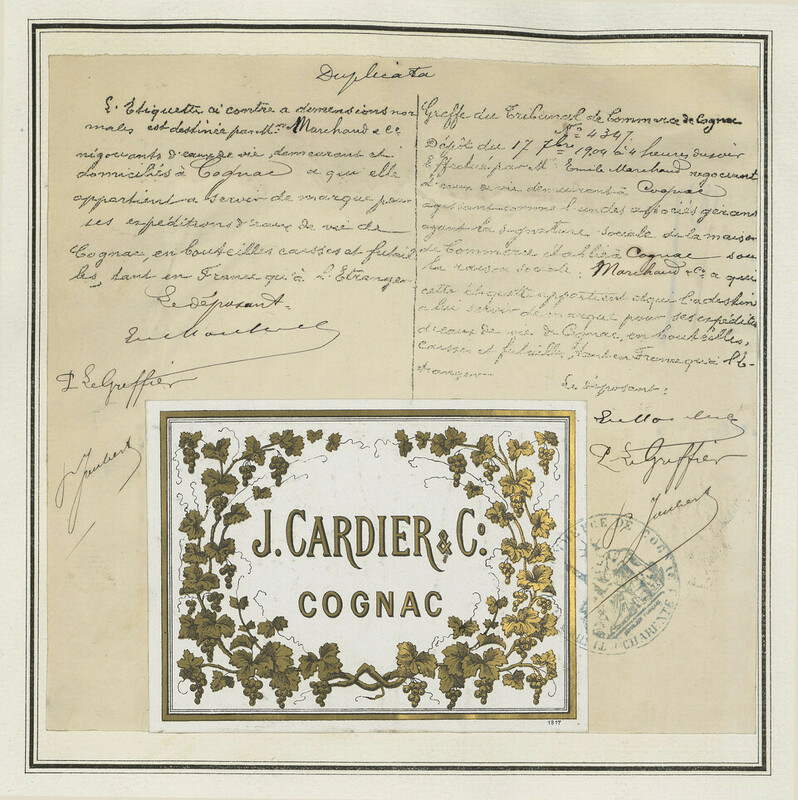 Duplicata
L'Etiquette ci contre a dimensions nor
males est destinée par Mrs Marchaud & Ce
négociants d'eaux de vie, demeurant et
domiciliés à Cognac a qui elle
appartient a servir de marque pour
ses expéditions d'eaux de vie de
Cognac, en bouteilles caisses et futail
les, tant en France qu'à l'Etranger
Le déposant.
P. Le Greffier
Jaubert
Greffe du Tribunal de Commerce de Cognac
No 4347.
Dépôt du 17 7bre 1904 à 4 heures du soir
Effectué par Mr Emile Marchaud négociant
d'eaux de vie demeurant à Cognac
agissant comme l'un des associés gérans
ayant la signature sociale de la maison
de Commerce établie à Cognac sou
la raison sociale: Marchaud & Ce a qui
cette étiquette appartient et qui l'a destin
a lui servir de marque pour ses expéditio
d'eaux de vie de Cognac, en bouteilles,
caisses et futailles, tant en France qu'à l'E-
tranger
Le déposant:
P. Le Greffier
Jaubert
J. CARDIER & Co.
COGNAC
1817
CHARENTE